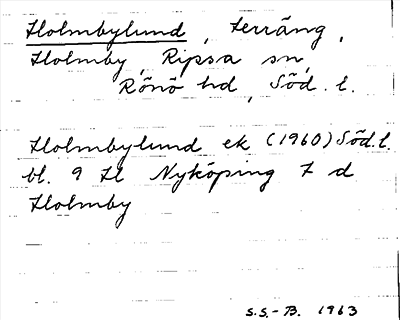 Holmbylund, terräng,
Holmby, Ripsa sn,
Rönö hd, Söd. l.
Holmbylund ek (1960) Söd. l.
bl. 9 H Nyköping 7 d
Holmby
S.S.-B. 1963